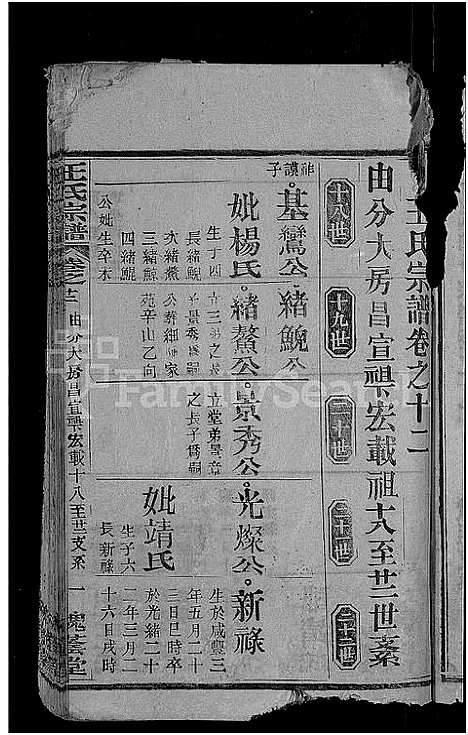 王氏宗譜卷之十二
由分大房昌宣興宏載祖十八至廿二世系
十八世
十九世
二十世
二十一世
二十二世
祚謨子
基鸞公
妣楊氏
生丁四
長緒鯢
次緒鰲
三緒鯀
四緒鯤
公妣生卒未
緒鯢公
緒鰲公
立堂弟景章
之長子為嗣
景秀公
光燦公
妣靖氏
生子六
長新祿
新祿
生於咸豐三
年五月二十
三日巳時卒
於光緒二十
二年三月二
十六日戌時
公葬
苑辛山乙向
王氏宗譜
卷之十二
由分大房昌宣興宏載十八至廿二支系
一
槐蔭堂
FamilySearch